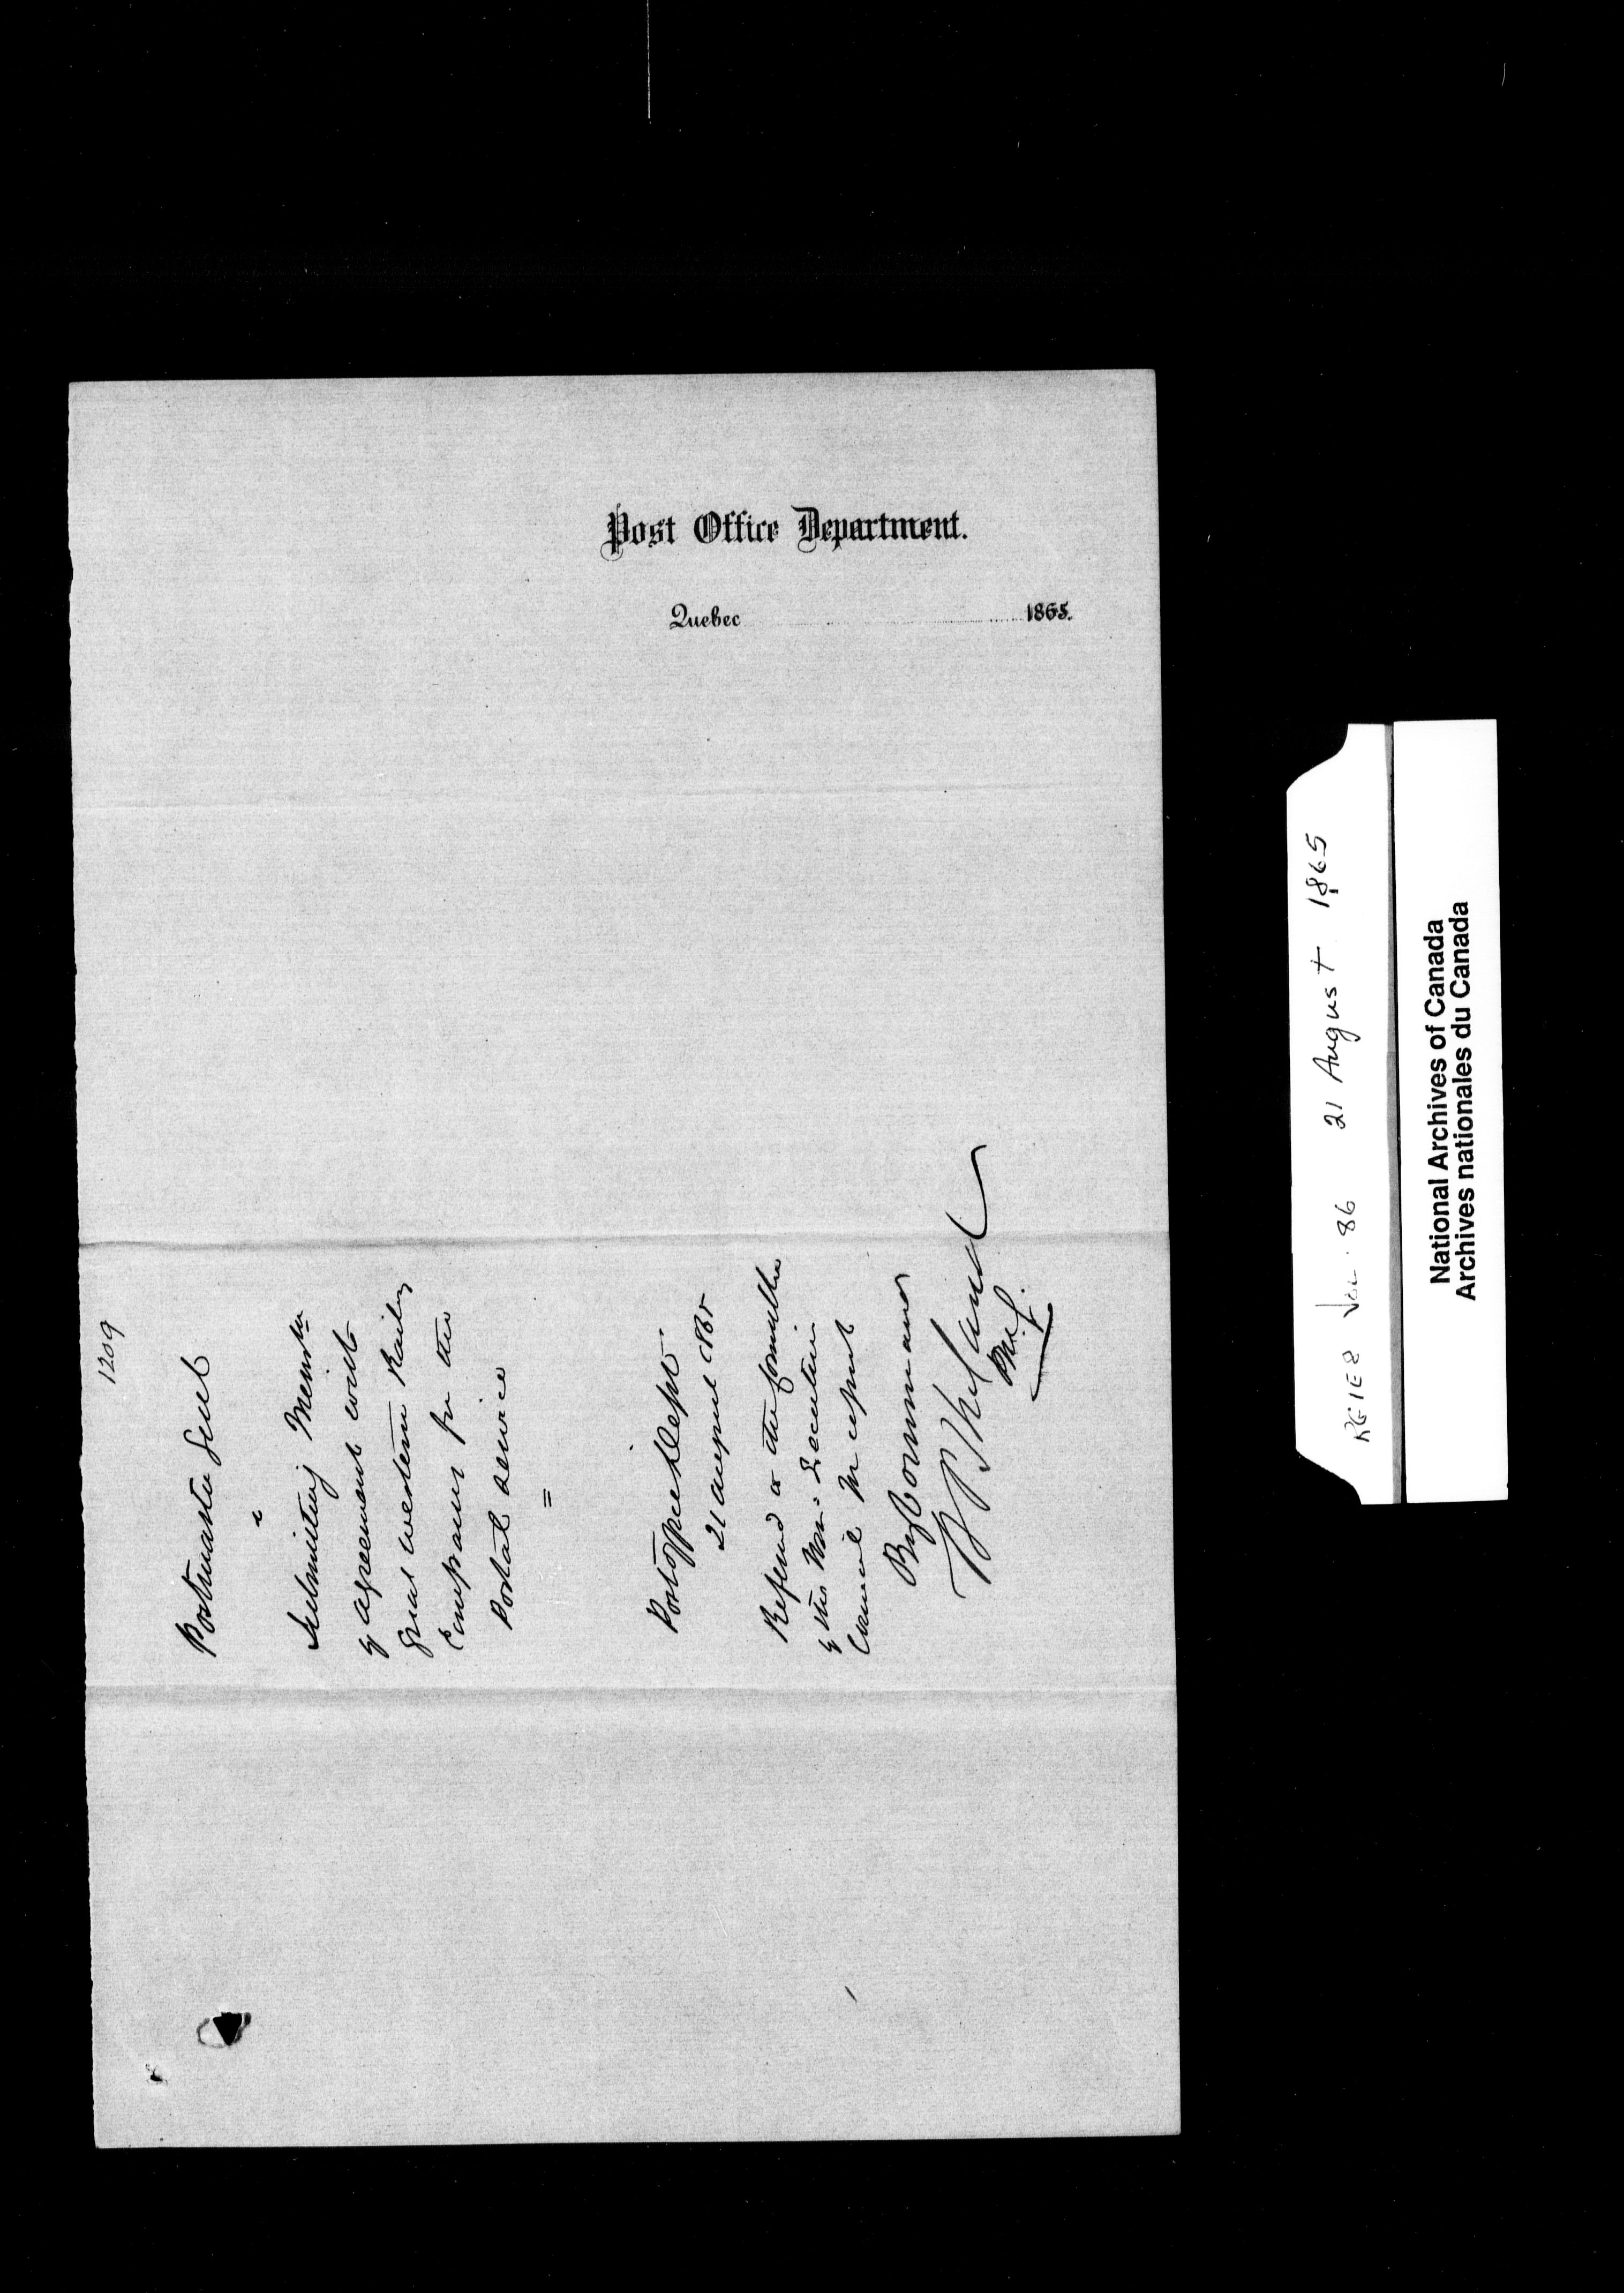 Post Office Department.
Quebec 1865.
1209
Postmaster Genl
Submitting Memdn
of Agreement with
Great Western Railway
Company for the
Postal service
Post Office Dept
21 August 1865
Referred to the
of the Hon. Executive
Council for report
By Command
RG1 E8 Vol. 86 21 August 1865
National Archives of Canada
Archives nationales du Canada